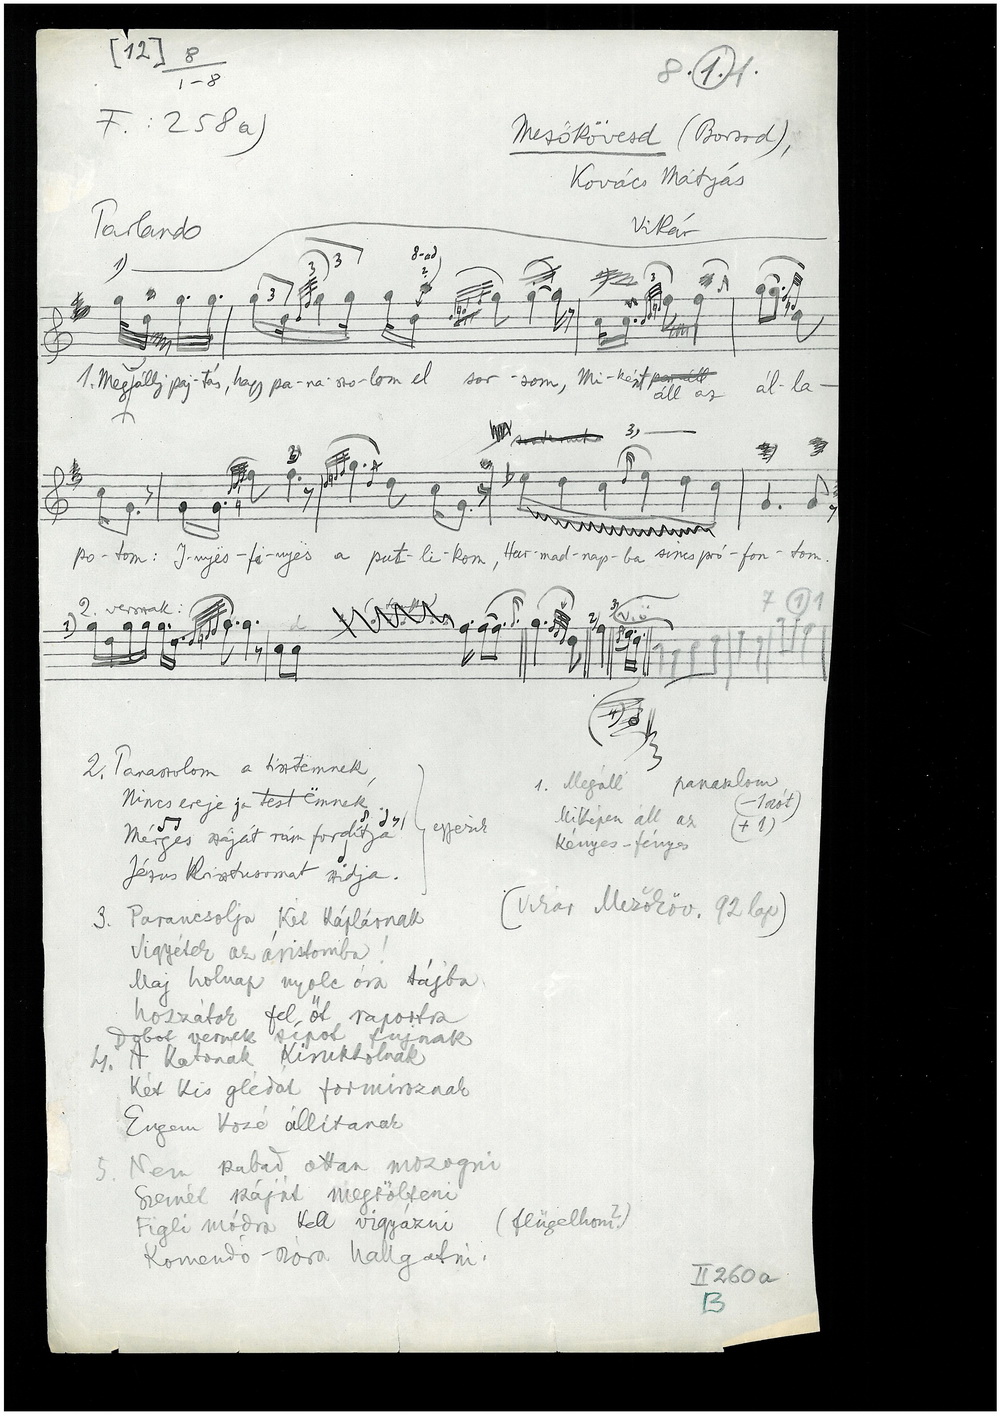 [12] 8
1-8
8. 1. 1.
F. : 258a)
Mezőkövesd (Borsod),
Kovács Mátyás
Parlando
Vikár
1)
3 3 3 8-ad ? 3
1. Megállj paj-tás, hagy pa-na-szo-lom el sor-som, Mi-ként áll az ál-la-
3) 3)
po-tom: I-nyës-fi-nyës a put-li-kom, Har-mad-nap-ba sincs pró-fon-tom.
2. versszak:
1) 2) 3)
7 1 1
4)
2. Panaszolom a tisztëmnek,
Nincs ereje ja testëmnek
Mérges száját rám fordítja
Jézus Krisztusomat szidja.
egyszer
1. Megáll panaszlom
(-1 szót)
Miképen áll az (+1)
Kényes-fényes
(Vikár Mezőköv. 92 lap)
3. Parancsolja két káplárnak
Vigyétek az áristomba!
Maj holnap nyolc óra tájba
hozzátok fel őt raportra
Dobot vernek sípot fujnak
4. A katonák kirukkolnak
Két kis glédát formiroznak
Engem közé állítanak
5. Nem szabad ottan mozogni
Szemét száját
Figli módra kell vigyázni (flügelhorn?)
Komendó-szóra hallgatni.
II 260a
B